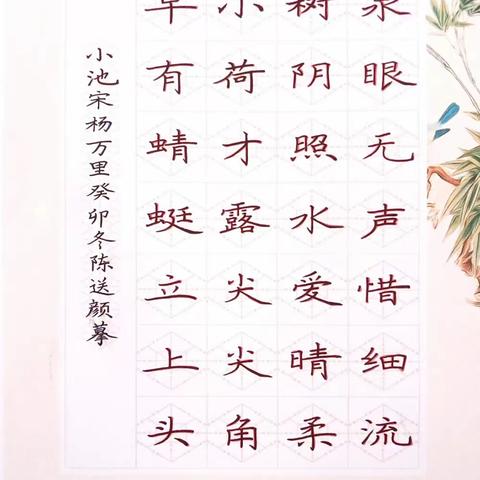 泉眼无声惜细流
树阴照水爱晴柔
小荷才露尖尖角
早有蜻蜓立上头
小池宋杨万里癸卯冬陈送颜摹